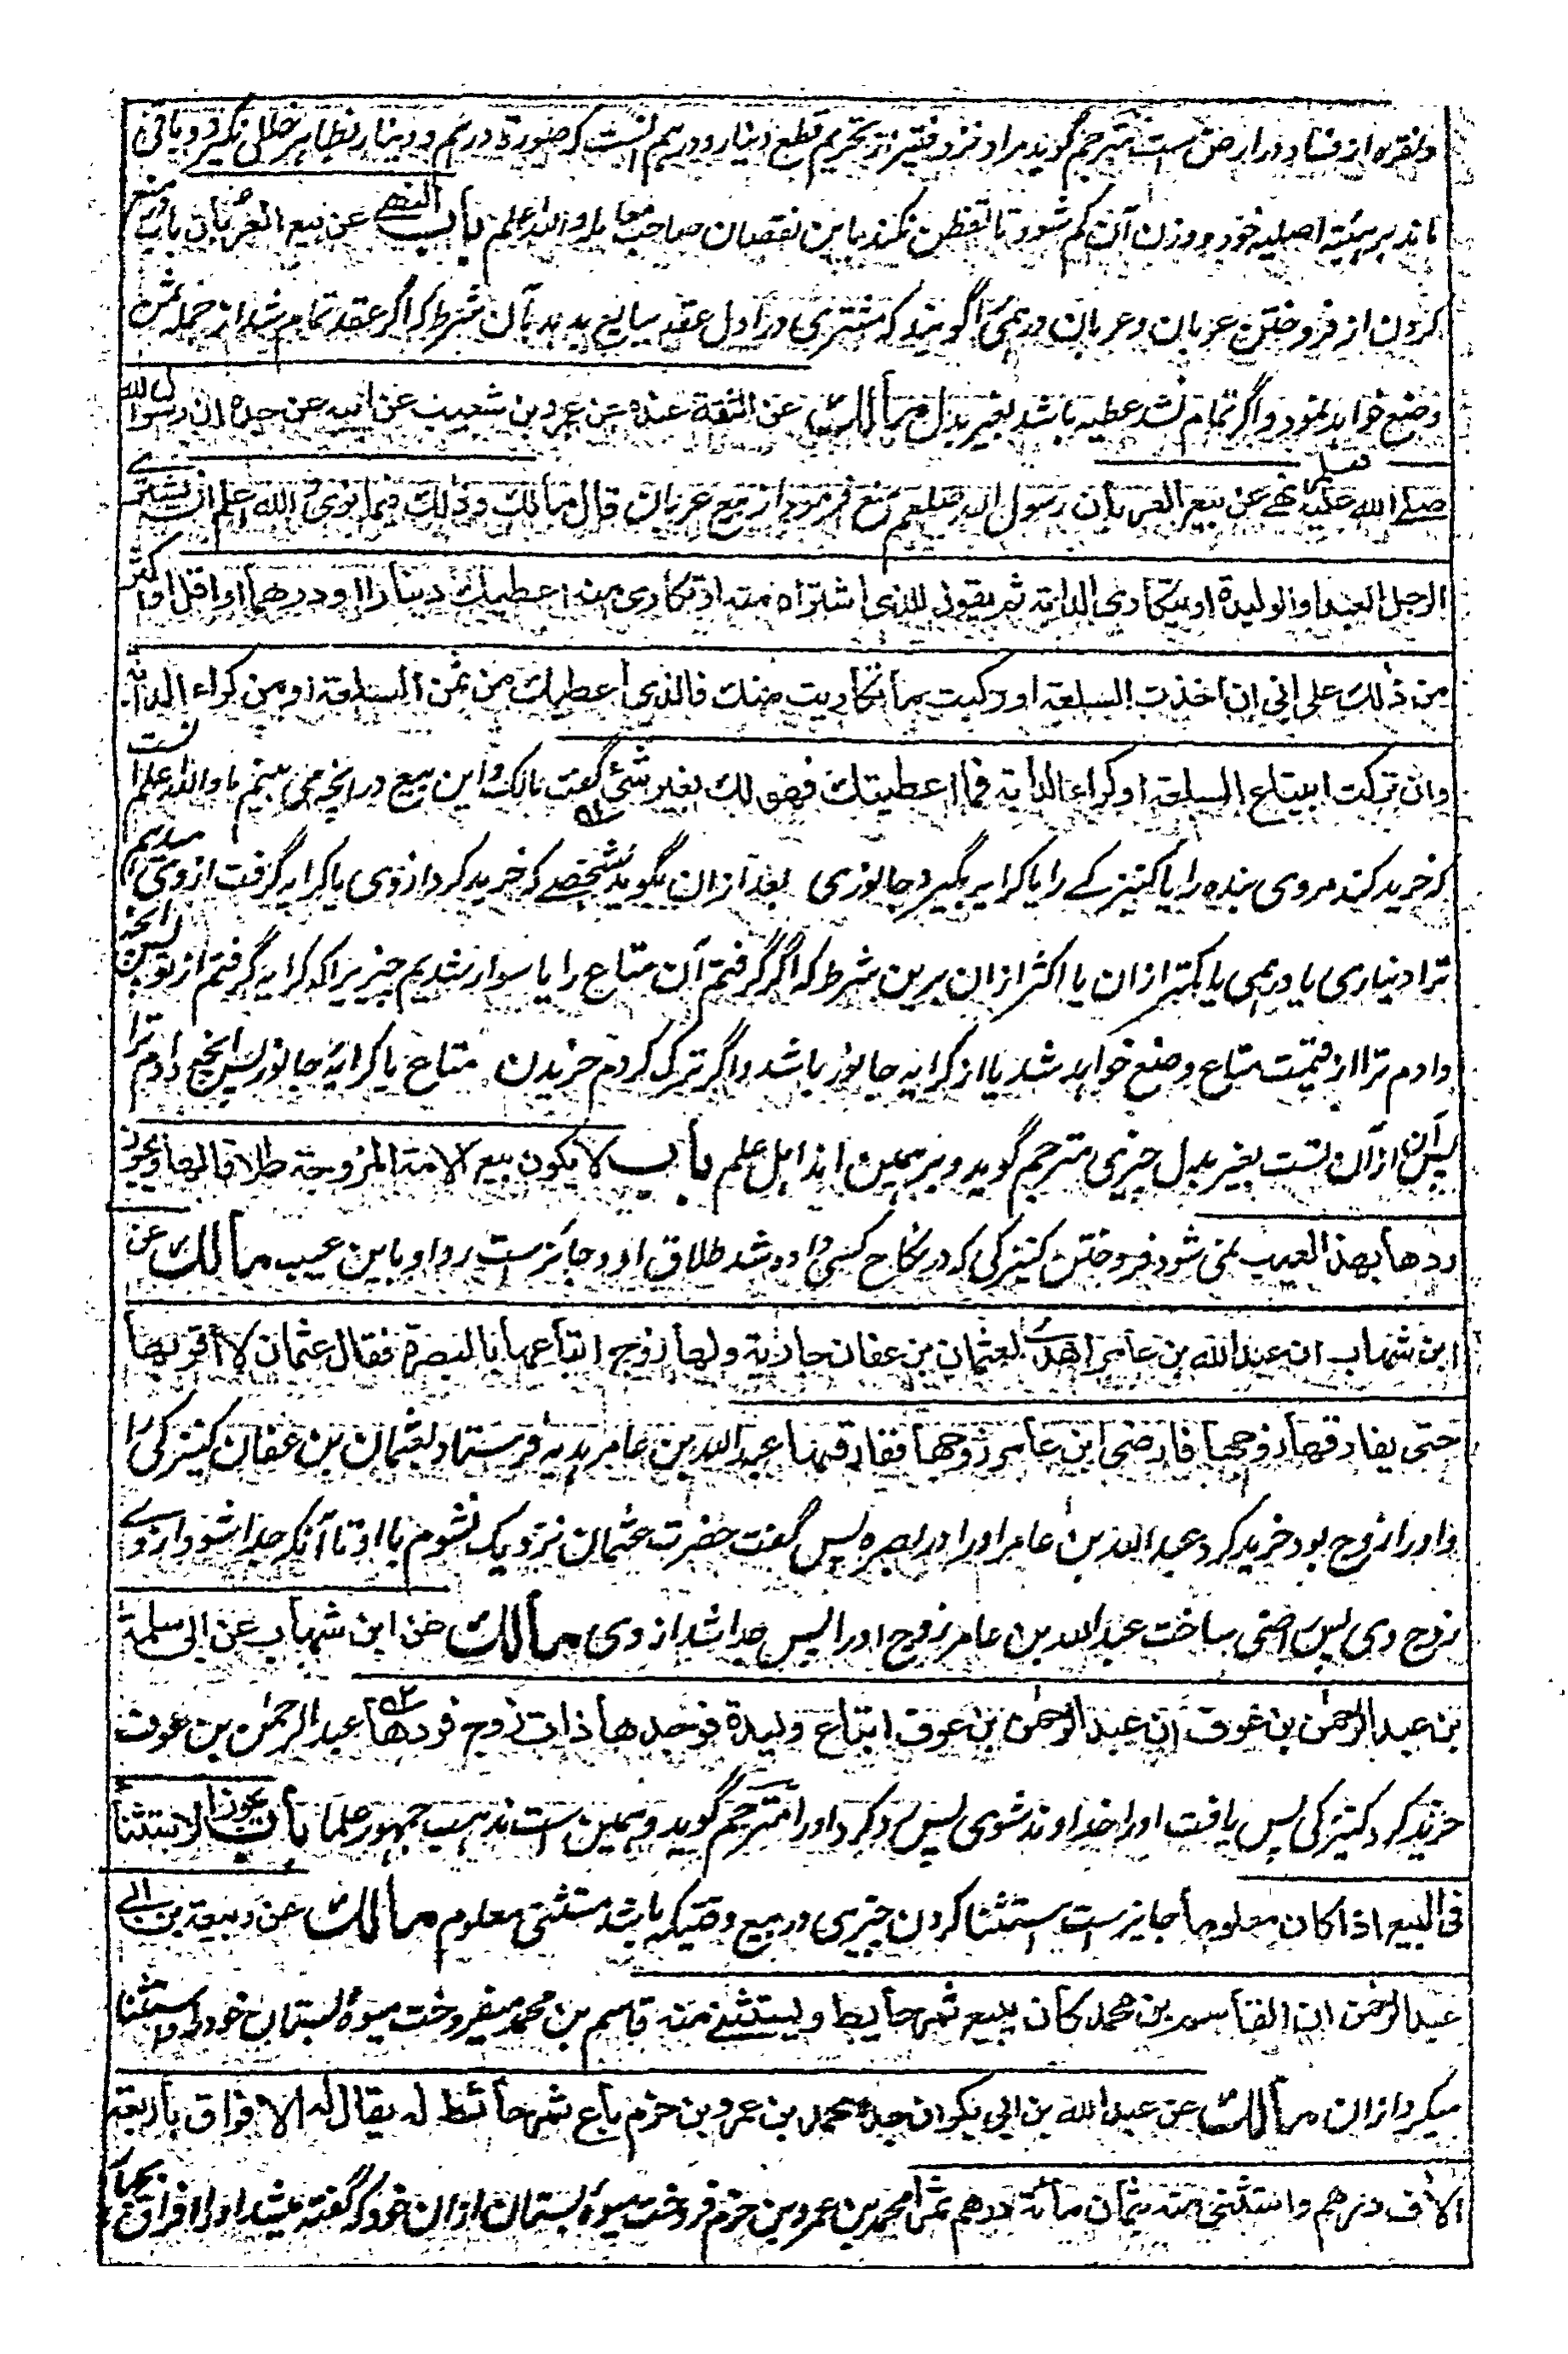 ونقره از فساد در ارض ست مترجم گوید مراد نزد فقیر از تحریم قطع دینار و درهم آنست که صورة درهم و دینار بظاهر خللی نگیرد و باقی
ماند بر هیئته اصلیه خود و وزن آن کم شود تا تفطن نکند باین نقصان صاحب معامله والله اعلم باب النهی عن بیع العربان باب منع
کردن از فروختن عربان و عربان درهمی را گویند که مشتری در اول عقد ببایع بدهد بآن شرط که اگر عقد تمام شد از جمله ثمن
وضع خواهد نمود و اگر تمام نشد عطیه باشد بغیر بدل مالك عن الثقة عنده عن عمرو بن شعیب عن ابیه عن جده ان رسول الله
صلی الله علیه وسلم نهی عن بیع العربان رسول الله صلعم منع فرمود از بیع عربان قال مالك وذلك فیما نری والله اعلم ان یشتری
الرجل العبد او الولیدة او یتکاری الدابة ثم یقول للذی اشتراه منه او تکاری منه اعطیك دینارا او درهما او اقل او اکثر
من ذلك علی انی ان اخذت السلعة او رکبت ما تکاریت منك فالذی اعطیك من ثمن السلعة او من کراء الدابة
وان ترکت ابتیاع السلعة او کراء الدابة فما اعطیتك فهو لك بغیر شئ گفت مالک و این بیع در انچه می بینم ما والله اعلم آنست
که خرید کند مردی بنده را یا کنیزکے را یا کرایه بگیرد جانوری بعد ازان بگوید بشخصے که خرید کرد ازوی یا کرایه گرفت ازوی میدهم
ترا دیناری یا درهمی یا کمتر ازان یا اکثر ازان برین شرط که اگر گرفتم آن متاع را یا سوار شدیم چیزیرا که کرایه گرفتم از تو پس انچه
دادم ترا از قیمت متاع وضع خواهد شد یا از کرایه جانور باشد و اگر ترک کردم خریدن متاع یا کرایهٔ جانور پس انچه دادم ترا
پس آن ازآن تست بغیر بدل چیزی مترجم گوید و بر همین اند اهل علم باب لا یکون بیع الامة المزوجة طلاقا لها ویجوز
ردها بهذا العیب نمی شود فروختن کنیزکی که در نکاح کسی داده شد طلاق او و جائزست رد او باین عیب مالك عن
ابن شهاب ان عبد الله بن عامر اهدی لعثمان بن عفان جاریة ولها زوج ابتاعها بالبصرة فقال عثمان لا اقربها
حتی یفارقها زوجها فارضی ابن عامر زوجها ففارقها عبد الله بن عامر هدیه فرستاد بعثمان بن عفان کنیزکی را
و او را زوج بود خرید کرد عبد الله بن عامر او را در بصره پس گفت حضرت عثمان نزدیک نشوم با او تا آنکه جدا شود ازوے
زوج وی پس راضی ساخت عبد الله بن عامر زوج او را پس جدا شد ازوی مالك عن ابن شهاب عن ابی سلمة
بن عبد الرحمن بن عوف ان عبد الرحمن بن عوف ابتاع ولیدة فوجدها ذات زوج فردها عبد الرحمن بن عوف
خرید کرد کنیزکی پس یافت او را خداوند شوی پس رد کرد او را مترجم گوید و همین است مذهب جمهور علما باب یجوز الاستثناء
فی البیع اذا کان معلوما جایزست استثنا کردن چیزی در بیع وقتیکه باشد مستثنی معلوم مالك عن ربیعة بن ابی
عبد الرحمن ان القاسم بن محمد کان یبیع ثمر حایطه ویستثنی منه قاسم بن محمد میفروخت میوهٔ بستان خود و استثنا
میکرد ازان مالك عن عبد الله بن ابی بکر ان جده محمد بن عمرو بن حزم باع ثمر حائط له یقال له الافراق باربعة
الاف درهم واستثنی منه بثمان مائة درهم تمرا محمد بن عمرو بن حزم فروخت میوهٔ بستان ازان خود که گفته میشد او را افراق بچهار